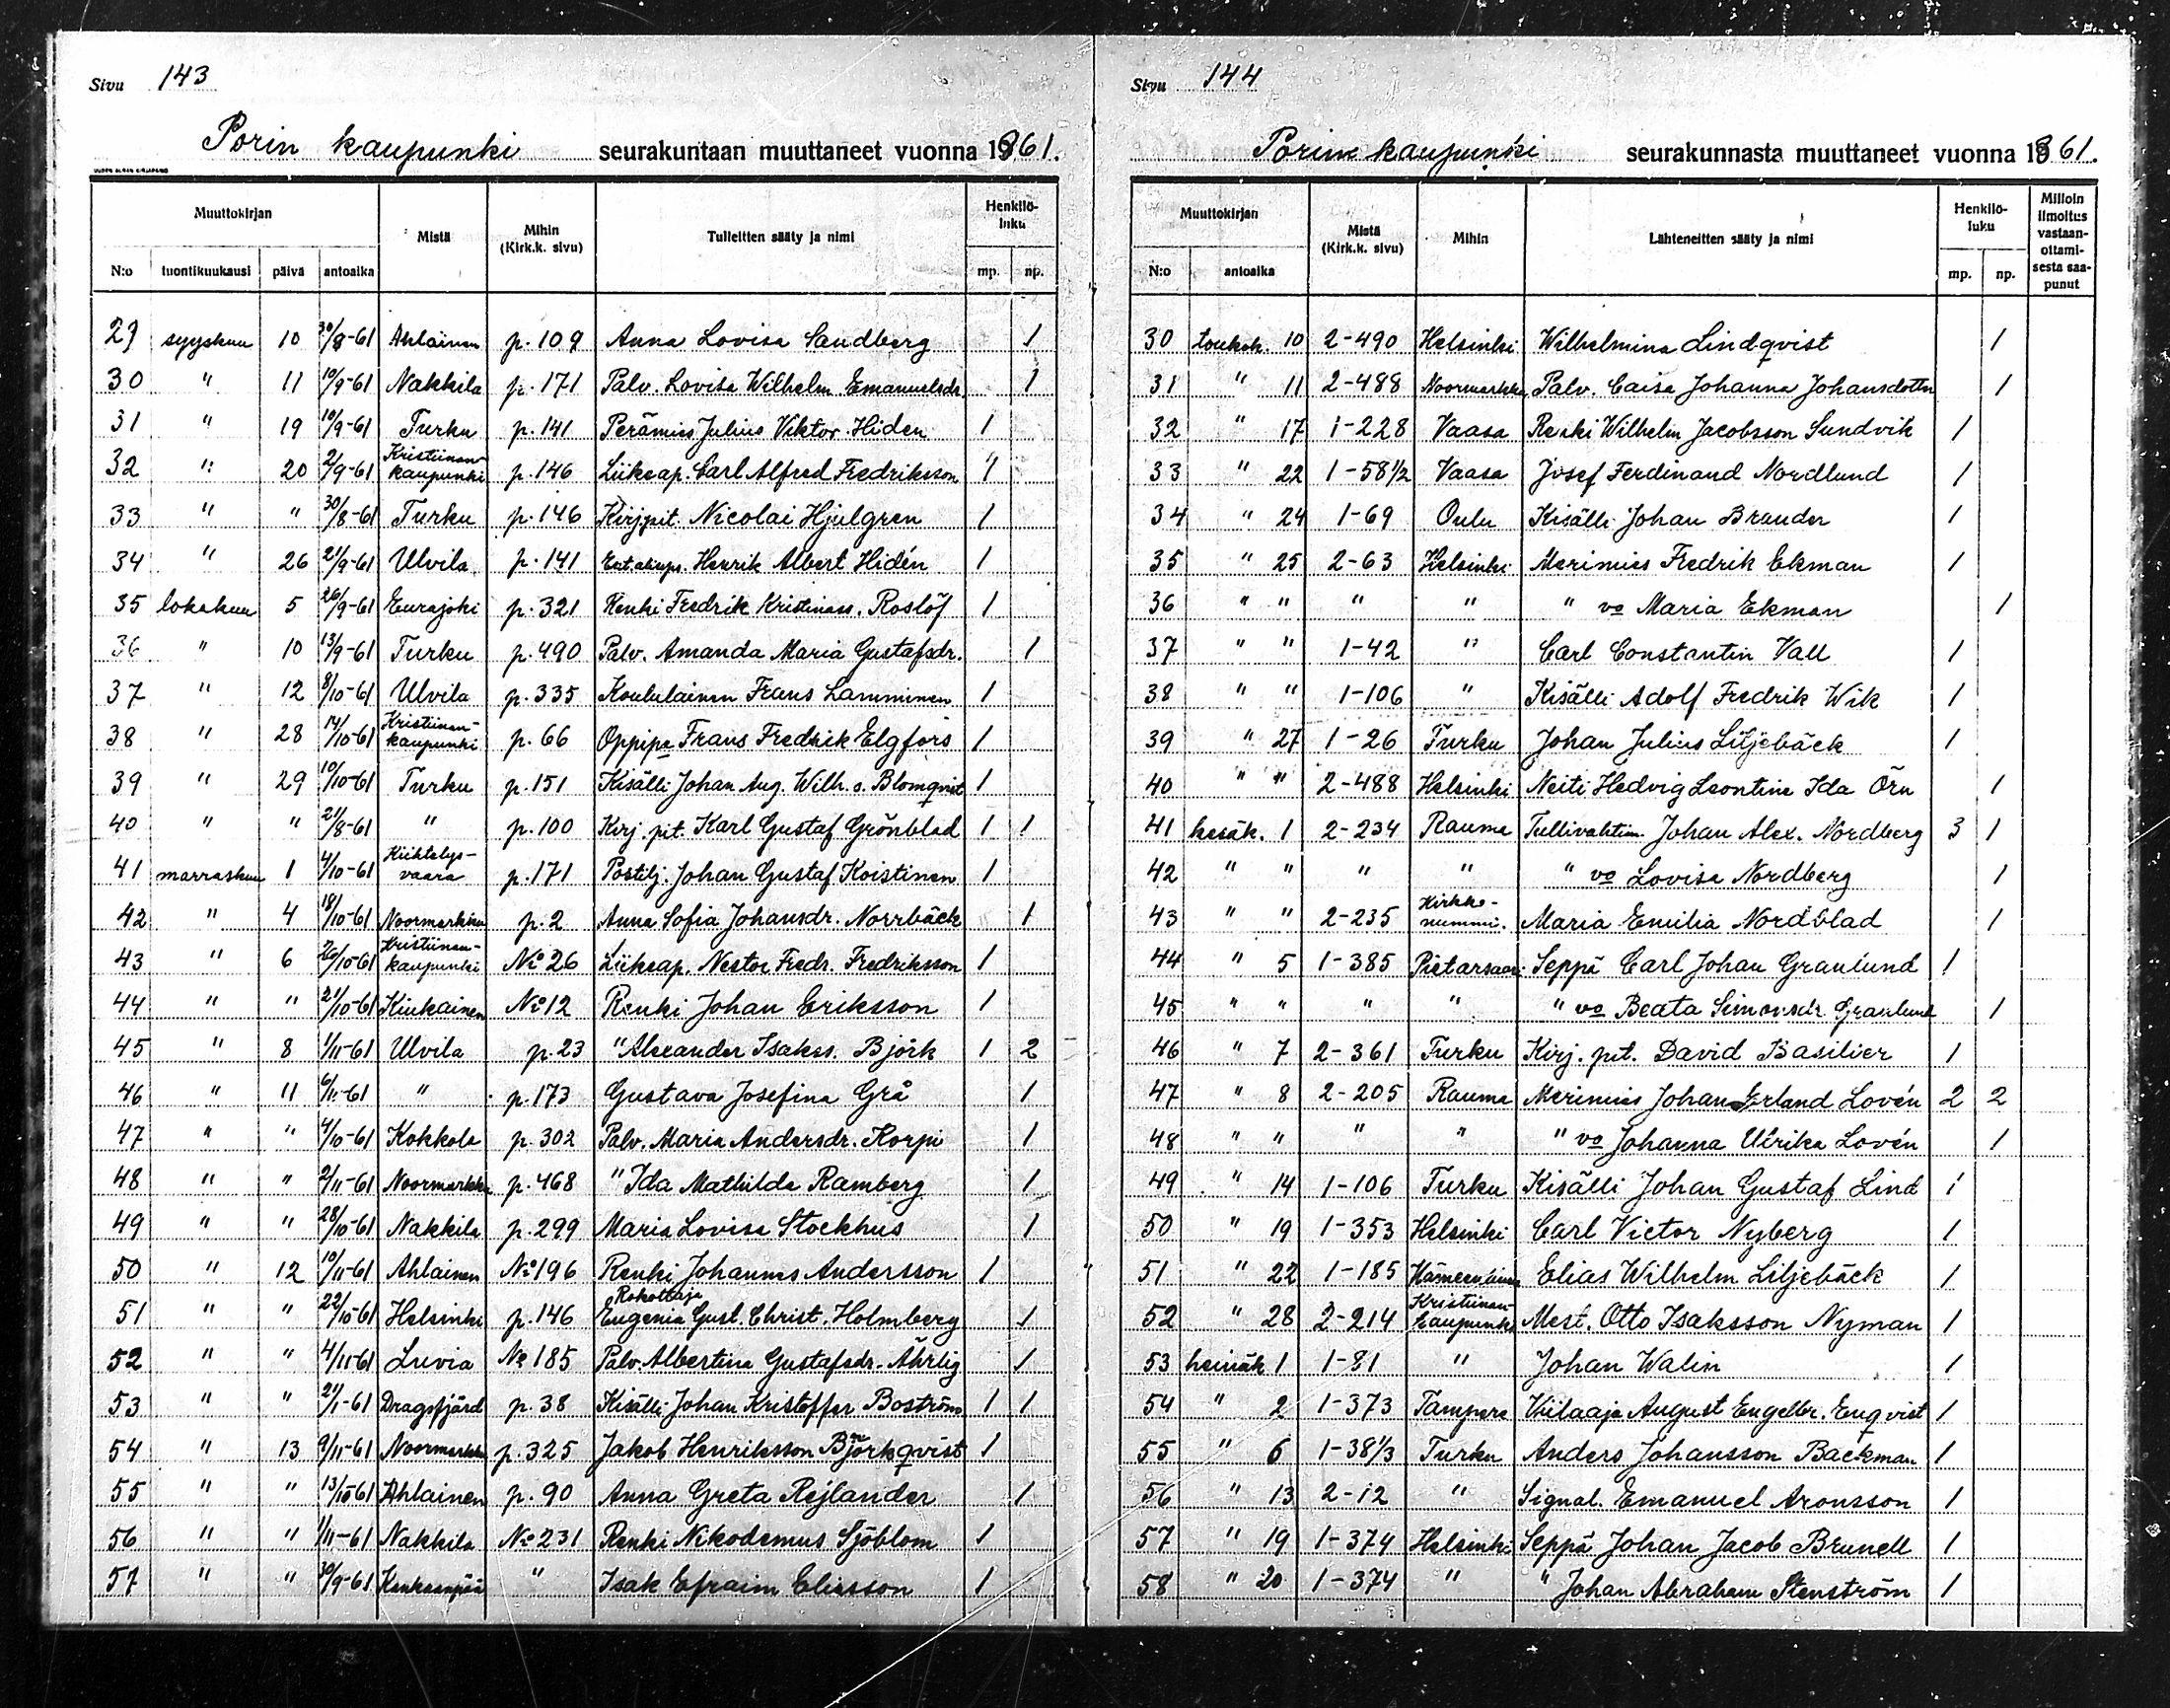 Sivu 143
Porin kaupunki seurakuntaan muuttaneet vuonna 1861.
Muuttokirjan Mistä Mihin (Kirk.k. sivu) Tulleitten sääty ja nimi Henkilöluku
N:o tuontikuukausi päivä antoaika mp. np.
29 syyskuu 10 30/8-61 Ahlainen p. 109 Anna Lovisa Sandberg 1
30 " 11 10/9-61 Nakkila p. 171 Palv. Lovisa Wilhelm. Emanuelsdr. 1
31 " 19 10/9-61 Turku p. 141 Perämies Julius Viktor Hiden 1
32 " 20 2/9-61 Kristiinankaupunki p. 146 Liikeap. Carl Alfred Fredriksson 1
33 " " 30/8-61 Turku p. 146 Kirjpit. Nicolai Hjulgren 1
34 " 26 21/9-61 Ulvila p. 141 Henrik Albert Hidén 1
35 lokakuu 5 26/9-61 Eurajoki p. 321 Renki Fredrik Kristinass. Roslöf 1
36 " 10 13/9-61 Turku p. 490 Palv. Amanda Maria Gustafsdr. 1
37 " 12 8/10-61 Ulvila p. 335 Koululainen Frans Lamminen 1
38 " 28 14/10-61 Kristiinankaupunki p. 66 Oppipa Frans Fredrik Elgfors 1
39 " 29 10/10-61 Turku p. 151 Kisälli Johan Aug. Wilh. s. Blomqvist 1
40 " " 21/8-61 " p. 100 Kirj. pit. Karl Gustaf Grönblad 1 1
41 marraskuu 1 4/10-61 Kiihtelysvaara p. 171 Postilj. Johan Gustaf Koistinen 1
42 " 4 18/10-61 Noormarkku p. 2 Anna Sofia Johansdr. Norrbäck 1
43 " 6 26/10-61 Kristiinankaupunki No 26 Liikeap. Nestor Fredr. Fredriksson 1
44 " " 21/10-61 Kiukainen No 12 Renki Johan Eriksson 1
45 " 8 1/11-61 Ulvila p. 23 " Alexander Isakss. Björk 1 2
46 " 11 6/11-61 " p. 173 Gustava Josefina Grå 1
47 " " 4/10-61 Kokkola p. 302 Palv. Maria Andersdr. Korpi 1
48 " " 2/11-61 Noormarkku p. 468 " Ida Mathilda Ramberg 1
49 " " 28/10-61 Nakkila p. 299 Maria Lovisa Stockhus 1
50 " 12 10/11-61 Ahlainen No 196 Renki Johannes Andersson 1
51 " " 22/10-61 Helsinki p. 146 Rokottaja Eugenia Gust. Christ. Holmberg 1
52 " " 4/11-61 Luvia No 185 Palv. Albertina Gustafsdr. Ährlig 1
53 " " 21/1-61 Dragsfjärd p. 38 Kisälli Johan Kristoffer Boström 1 1
54 " 13 9/11-61 Noormarkku p. 325 Jakob Henriksson Björkqvist 1
55 " " 13/10-61 Ahlainen p. 90 Anna Greta Rejlander 1
56 " " 1/11-61 Nakkila No 231 Renki Nikodemus Sjöblom 1
57 " " 30/9-61 Kankaanpää " Isak Efraim Eliasson 1
Sivu 144
Porin kaupunki seurakunnasta muuttaneet vuonna 1861.
Muuttokirjan Mistä (Kirk.k. sivu) Mihin Lähteneitten sääty ja nimi Henkilöluku Milloin ilmoitus vastaanottamisesta saapunut
N:o antoaika mp. np.
30 toukok. 10 2-490 Helsinki Wilhelmina Lindqvist 1
31 " 11 2-488 Noormarkku Palv. Caisa Johanna Johansdotter 1
32 " 17 1-228 Vaasa Renki Wilhelm Jacobsson Sundvik 1
33 " 22 1-58 1/2 Vaasa Josef Ferdinand Nordlund 1
34 " 24 1-69 Oulu Kisälli Johan Brander 1
35 " 25 2-63 Helsinki Merimies Fredrik Ekman 1
36 " " " " " vo Maria Ekman 1
37 " " 1-42 " Carl Constantin Vall 1
38 " " 1-106 " Kisälli Adolf Fredrik Wik 1
39 " 27 1-26 Turku Johan Julius Liljebäck 1
40 " " 2-488 Helsinki Neiti Hedvig Leontine Ida Örn 1
41 kesäk. 1 2-234 Rauma Tullivahtim. Johan Alex. Nordberg 3 1
42 " " " " " vo Lovisa Nordberg 1
43 " " 2-235 Kirkkonummi. Maria Emilia Nordblad 1
44 " 5 1-385 Pietarsaari Seppä Carl Johan Granlund 1
45 " " " " " vo Beata Simonsdr. Granlund 1
46 " 7 2-361 Turku Kirj. pit. David Basilier 1
47 " 8 2-205 Rauma Merimies Johan Erland Lovén 2 2
48 " " " " " vo Johanna Ulrika Lovén 1
49 " 14 1-106 Turku Kisälli Johan Gustaf Lind 1
50 " 19 1-353 Helsinki Carl Victor Nyberg 1
51 " 22 1-185 Hämeenlinna Elias Wilhelm Liljebäck 1
52 " 28 2-214 Kristiinankaupunki Mest. Otto Isaksson Nyman 1
53 heinäk 1 1-81 " Johan Walin 1
54 " 2 1-373 Tampere Viilaaja August Engelbr. Enqvist 1
55 " 6 1-38 1/3 Turku Anders Johansson Backman 1
56 " 13 2-12 " Signal. Emanuel Aronsson 1
57 " 19 1-374 Helsinki Seppä Johan Jacob Brunell 1
58 " 20 1-374 " " Johan Abraham Stenström 1